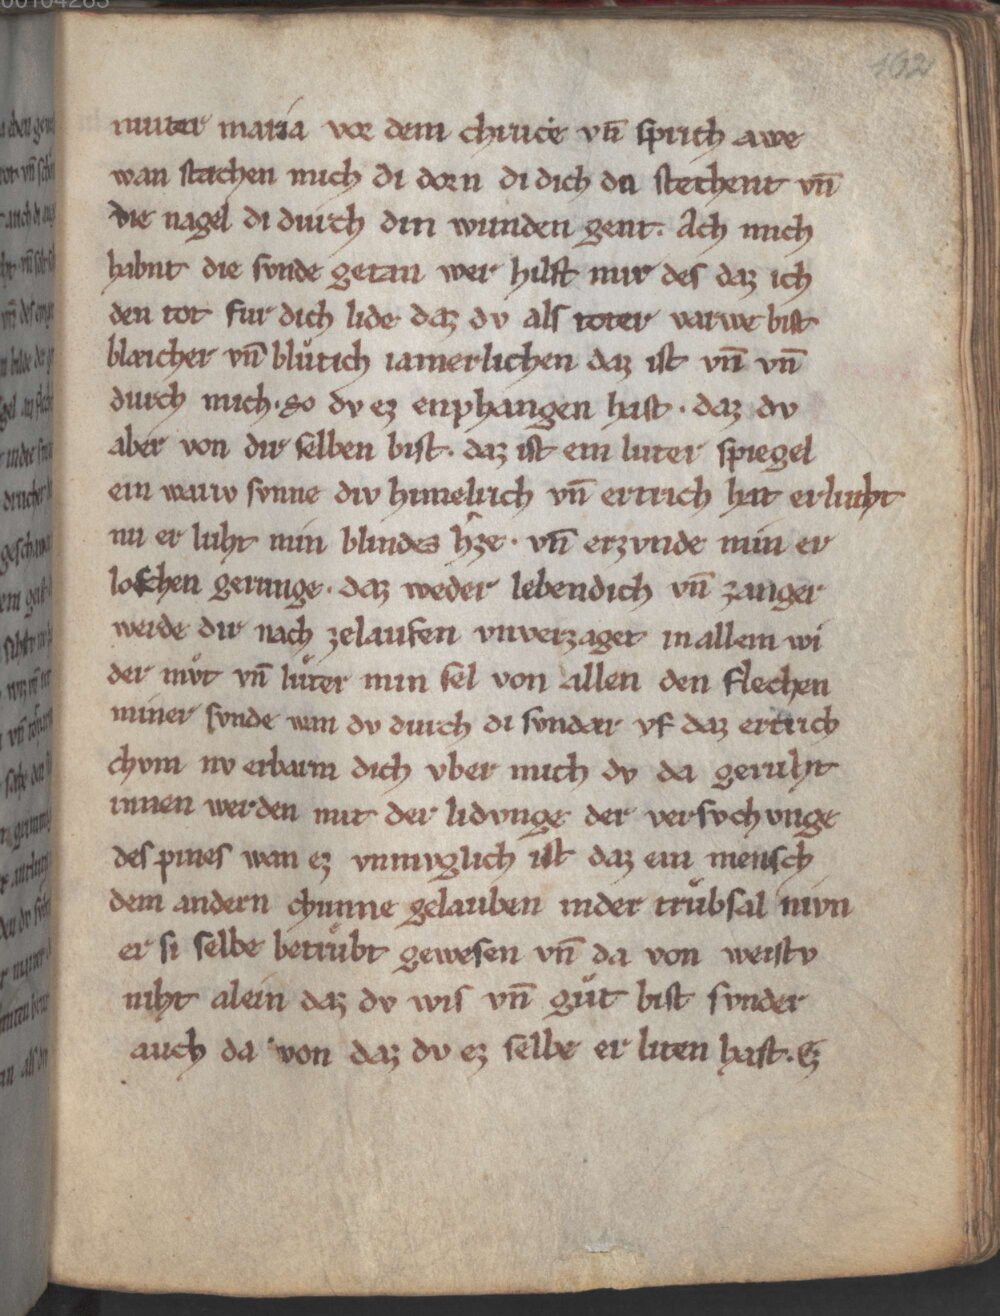 102
muter maria vor dem chruce vn̄ sprich awe
wan stachen mich di dorn di dich da stechent vn̄
die nagel di durch din wunden gent. Ach mich
habnt die sunde getan wer hilft mir des daz ich
den tot fur dich lide daz du als toter varwe bist
blaicher vn̄ blůtich iamerlichen daz ist vn̄ vn̄
durch mich. so dv ez enphangen hast. daz dv
aber von dir selben bist. daz ist ein luter spiegel
ein wariv sunne div himelrich vn̄ ertrich hat erluht
nu er luht min blindes h̄ze. vn̄ erzvnde min er
loschen gerunge. daz weder lebendich vn̄ zanger
werde dir nach zelaufen vnverzaget in allem wi
der můt vn̄ lůter min sel von allen den flechen
miner svnde wan dv durch di svndær vf daz ertrich
chom nv erbarm dich vber mich dv da geruht
innen werden mit der lidvnge der versvchvnge
des pines wan ez vnmvglich ist daz ein mensch
dem andern chunne gelauben in der trůbsal nivn
er si selbe betrůbt gewesen vn̄ da von weistv
niht alein daz dv wis vn̄ gůt bist svnder
auch da von daz dv ez selbe er liten hast. Ez